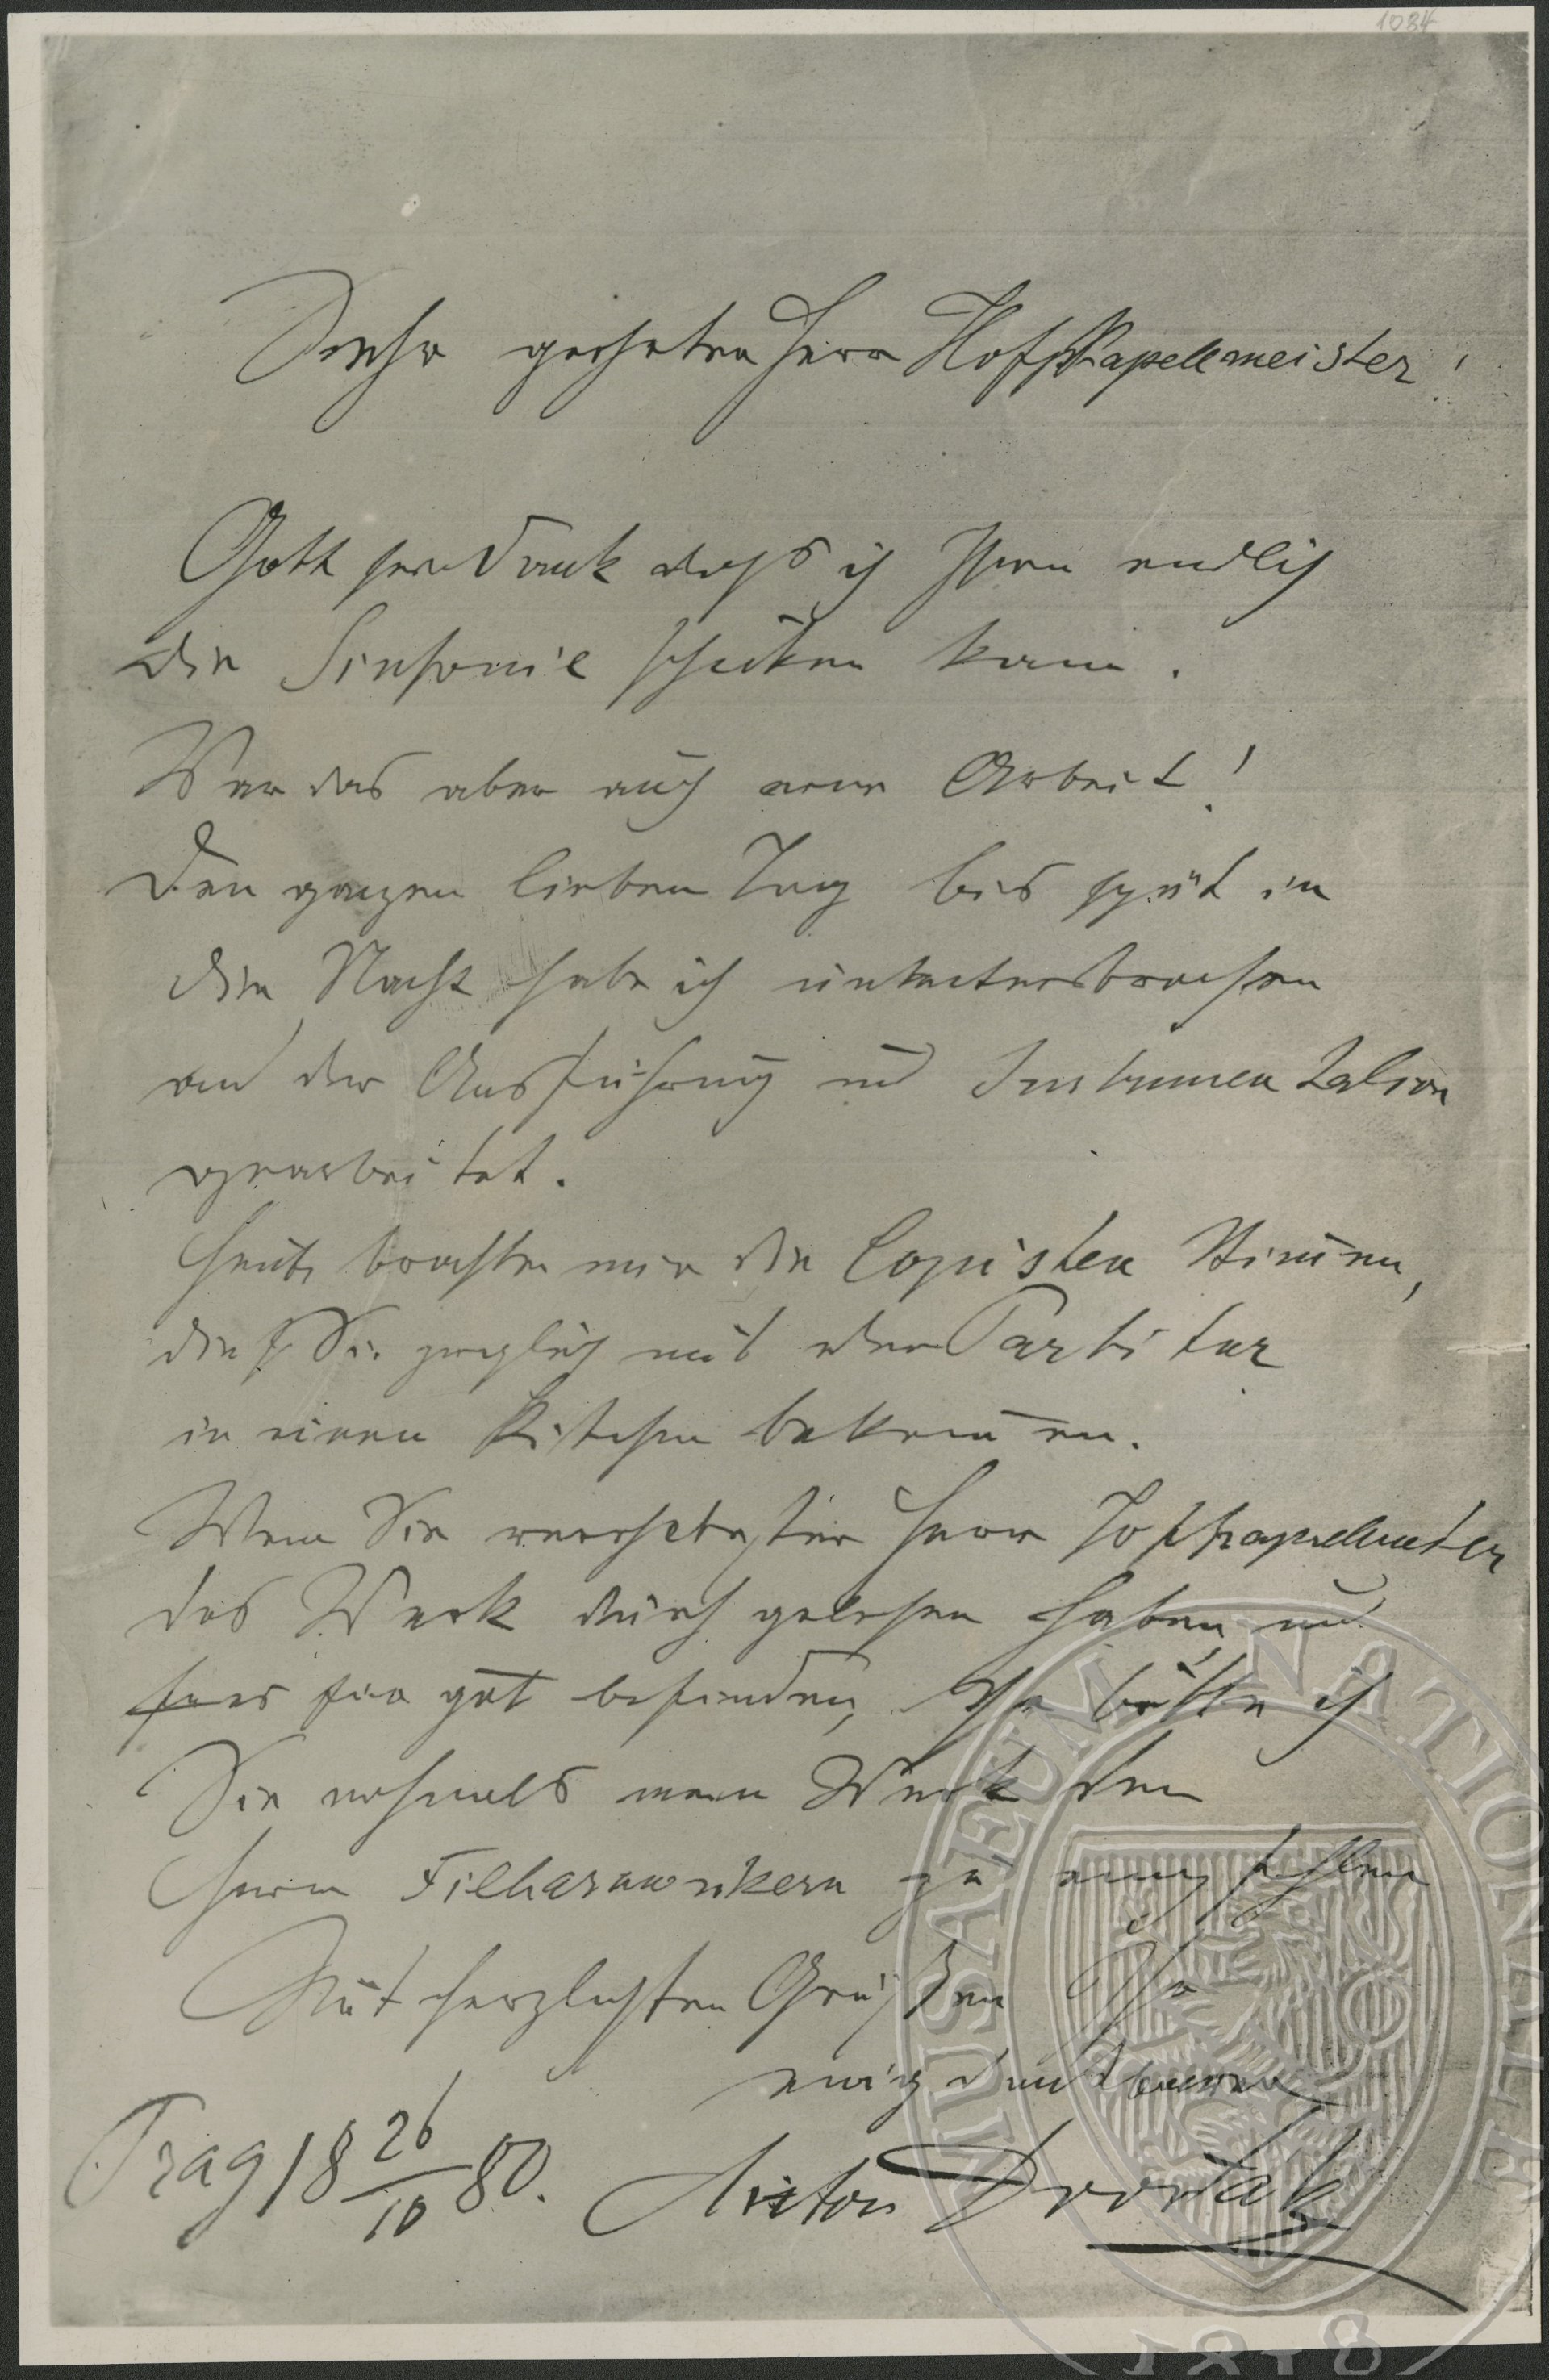 1084
Sehr geehrter Herr Hofkapellmeister!
Gott sei Dank dass ich Ihnen endlich
die Sinfonie schicken kann.
War das aber auch eine Arbeit!
Den ganzen lieben Tag bis spät in
die Nacht habe ich
an der Ausführung und Instrumentation
gearbeitet.
Heute brachten mir die Copisten Stimmen,
die Sie zugleich mit der Partitur
in einem Kistchen bekommen.
Wenn Sie verehrtester Herr Hofkapellmeister
das Werk durchgelesen haben, und
für gut befinden, so bitte ich
Sie nochmals mein Werk den
Herrn Filharmonikern zu empfehlen
Mit herzlichsten Grüßen Ihr
ewig dankbarer
Prag 18 26/10 80. Anton Dvořák
MUSAEUM NATIONALE
1818